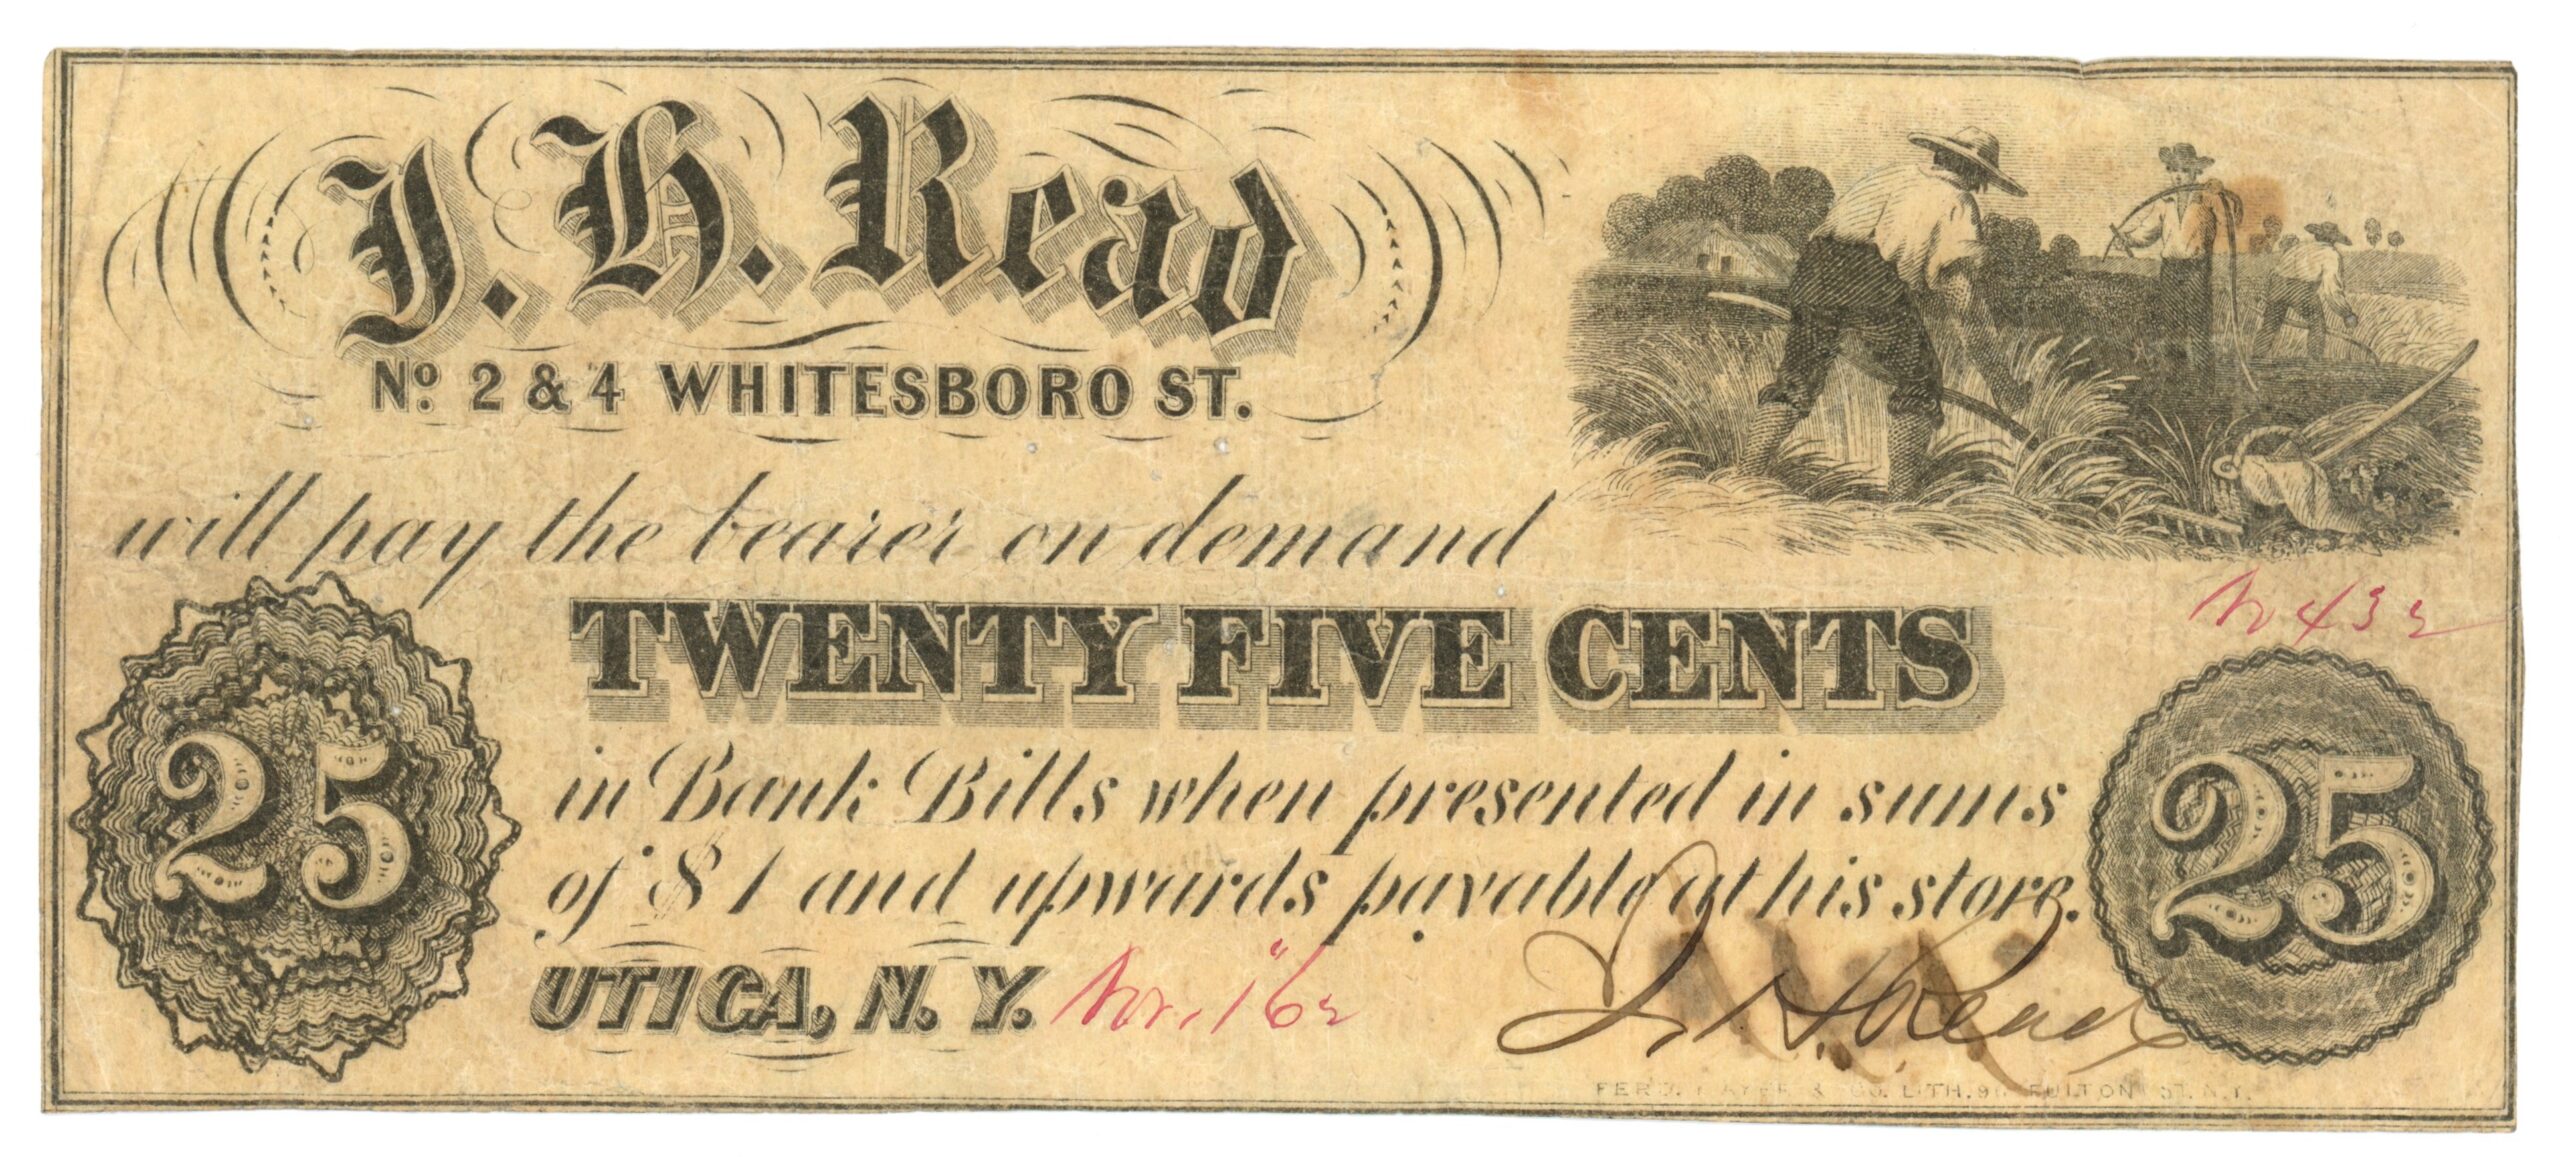 J. H. Read
No. 2 & 4 WHITESBORO ST.
will pay the bearer on demand
TWENTY FIVE CENTS
No 432
25
25
in Bank Bills when presented in sums
of $1 and upwards payable at his store.
UTICA, N. Y. Nov. 1" 62
J. H. Read
FERD. MAYER & CO. LITH. 96 FULTON ST. N.Y.